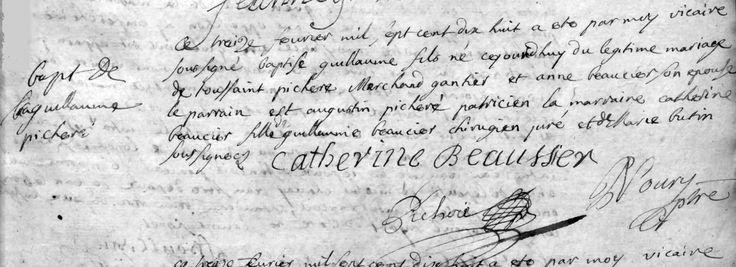 bapt De
guillaume
picheré
Ce treize fevrier mil sept cent dix huit a eté par moy vicaire
soussigné baptisé guillaume fils né cejourdhuy du legitime mariage
de toussaint picheré Marchand gantier et anne beaucier son epouse
le parrain est augustin picheré patricien la marraine catherine
beaucier fille de guillaume beaucier chirugien juré et de Marie butin
soussignez
Catherine Beaussier
ce treize fevrier mil sept cent dix huit a eté par moy vicaire